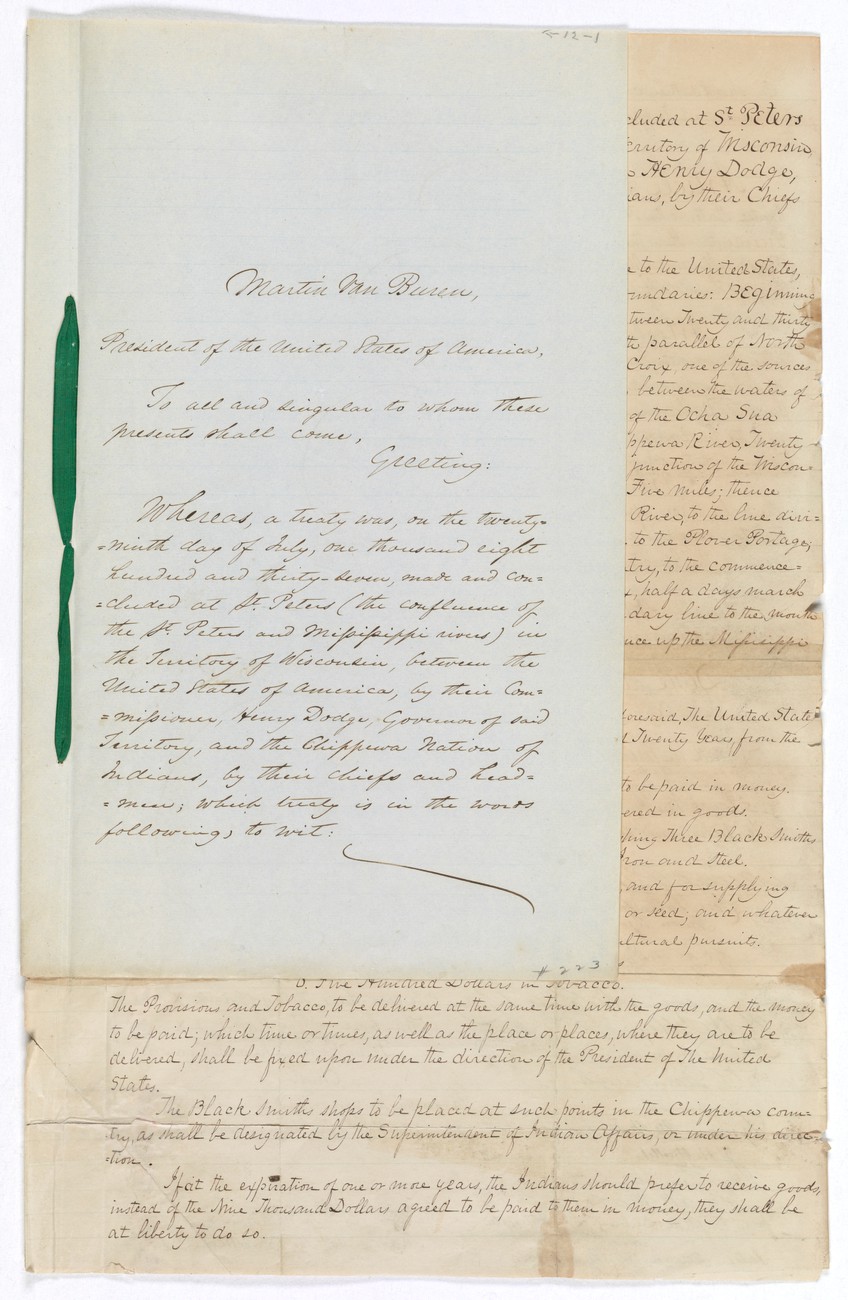 12-1
Martin Van Buren,
President of the United States of America,
To all and singular to whom these
presents shall come,
Greeting:
Whereas, a treaty was, on the twenty=
=ninth day of July, one thousand eight
hundred and thirty-seven, made and con=
=cluded at St. Peters (the confluence of
the St. Peters and Mississippi rivers) in
the Territory of Wisconsin, between the
United States of America, by their Com=
=missioner, Henry Dodge, Governor of said
Territory, and the Chippewa Nation of
Indians, by their chiefs and head=
=men; which treaty is in the words
following, to wit:
#223
cluded at St. Peters
erritory of Wisconsin,
Henry Dodge,
ians, by their Chiefs
to the United States,
undaries: Beginning
tween Twenty and thirty
parallel of North
Croix, one of the sources
between the waters of
of the Ocha Sua
ppewa River, Twenty
junction of the Wiscon=
Five miles; thence
River, to the line divi=
to the Plover Portage,
try, to the commence=
half a days march
dary line to the mouth
nce up the Missisippi
oresaid, The United State
Twenty Years, from the
to be paid in money.
ered in goods.
Three Black Smiths
Iron and Steel.
and for supplying
or seed; and whatever
ultural pursuits.
Five Hundred Dollars in Tobacco.
The Provisions and Tobacco, to be delivered at the same time with the goods, and the money
to be paid; which time or times, as well as the place or places, where they are to be
delivered, shall be fixed upon under the direction of the President of The United
States.
The Black Smiths shops to be placed at such points in the Chippewa coun=
try, as shall be designated by the Superintendent of Indian Affairs, or under his direc=
=tion.
If at the expiration of one or more years, the Indians should prefer to receive goods,
instead of the Nine Thousand Dollars agreed to be paid to them in money, they shall be
at liberty to do so.